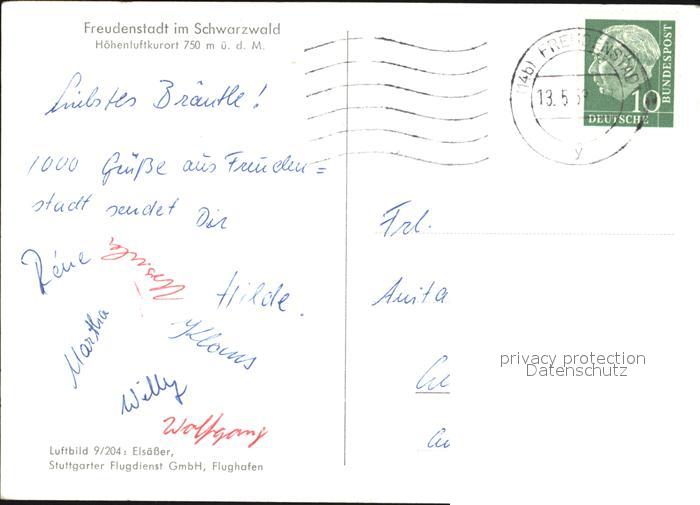 Freudenstadt im Schwarzwald
Höhenluftkurort 750 m ü. d. M.
Liebstes Bräutle!
1000 Grüße aus Freuden=
stadt sendet Dir
Réne
Hilde.
Martha
Klaus
Willy
Wolfgang
Luftbild 9/204: Elsäßer,
Stuttgarter Flugdienst GmbH, Flughafen
(14b) FREUDENSTADT
13.5.5
y
10
DEUTSCHE
BUNDESPOST
Frl.
Anita
privacy protection
Datenschutz